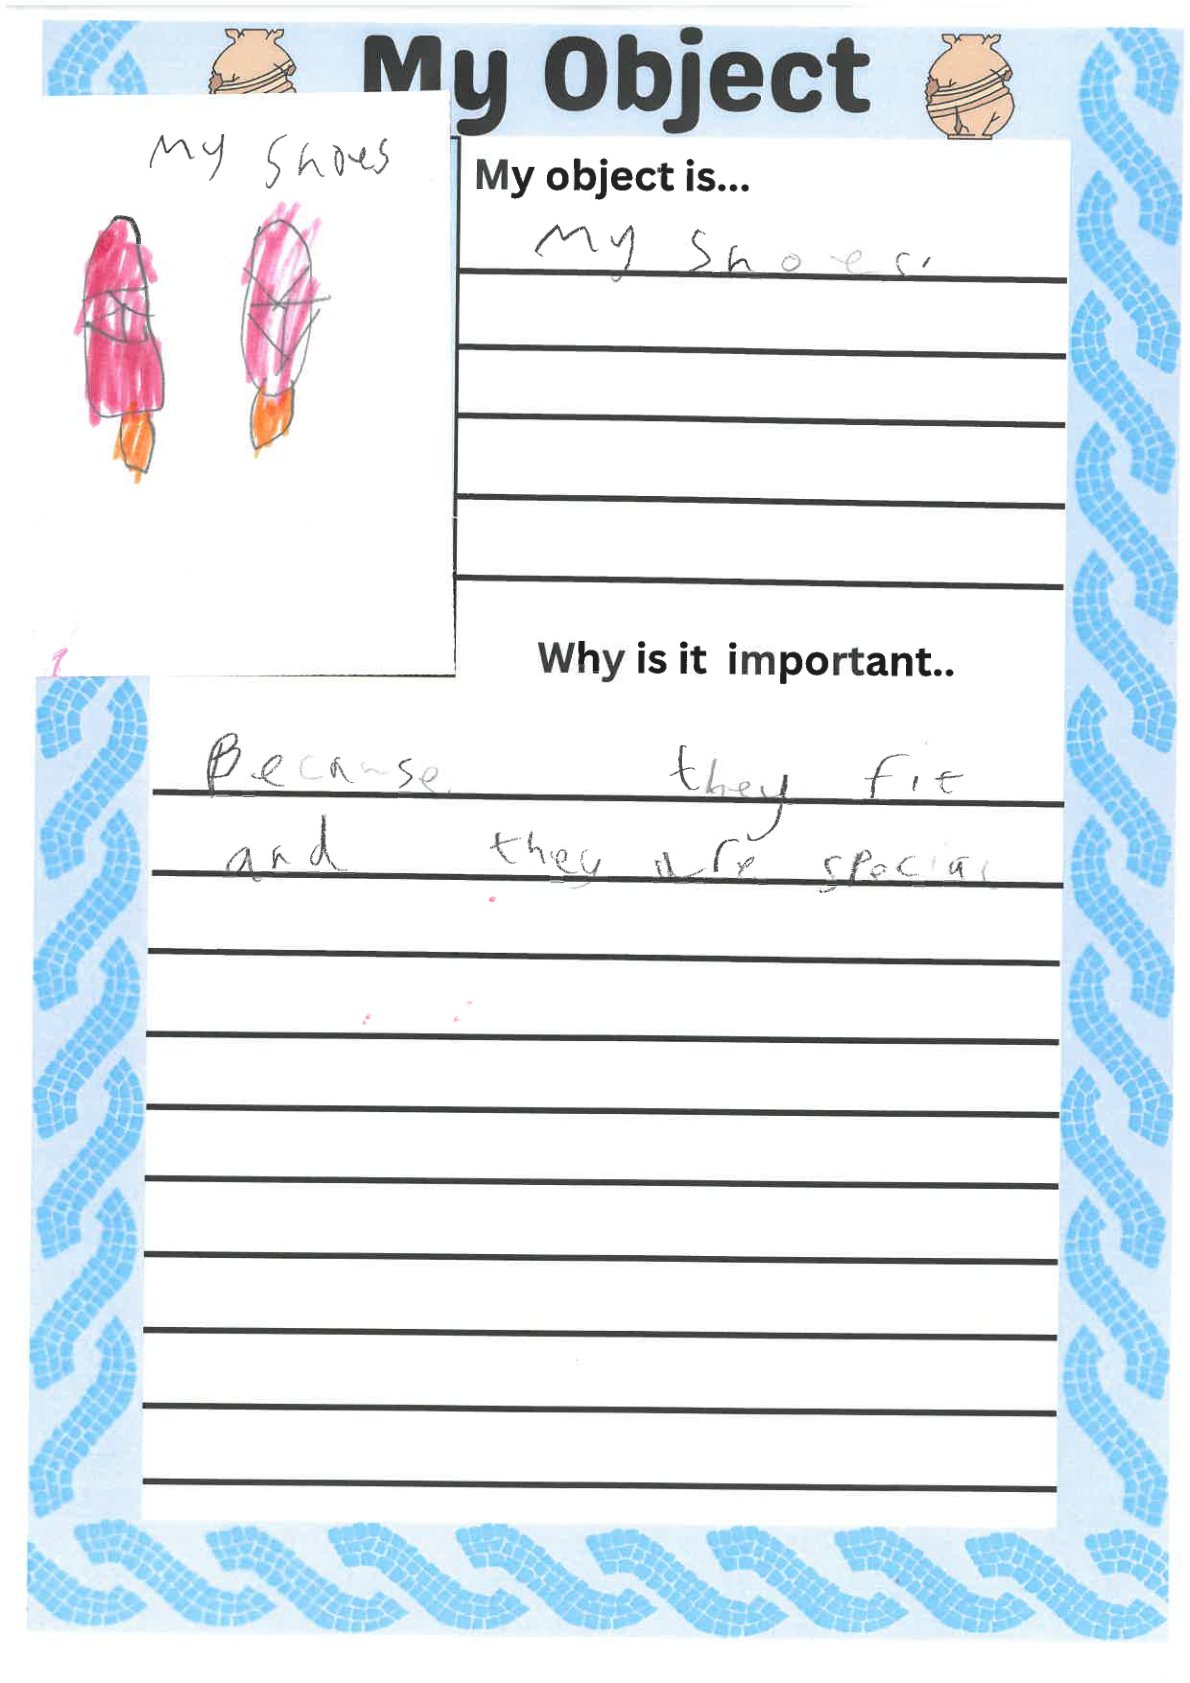 My Object
My Shoes
My object is...
My Shoes.
Why is it important..
Because they fit
and they are special